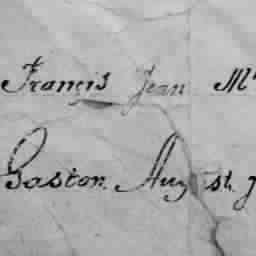 Francis Jean Mc
Gaston August